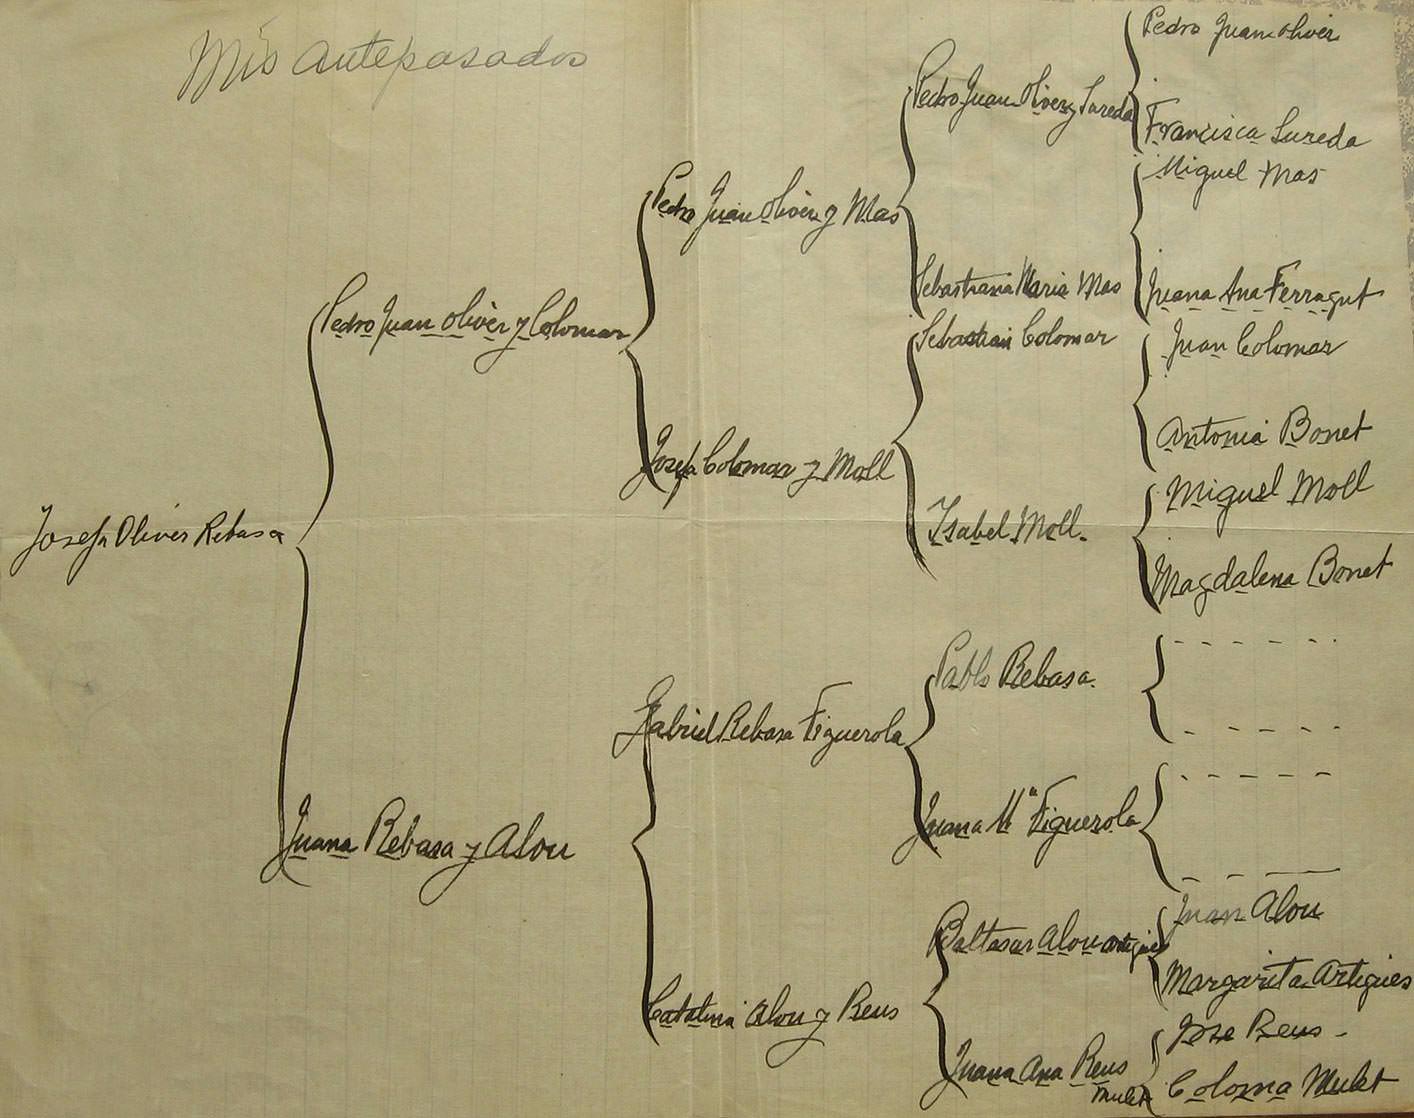 Mis antepasados
Josefa Oliver Rebasa
Pedro Juan Oliver y Colomar
Juana Rebasa y Alou
Pedro Juan Oliver y Mas
Josefa Colomar y Moll
Gabriel Rebasa Figuerola
Catalina Alou y Reus
Pedro Juan Oliver y Sureda
Sebastiana Maria Mas
Sebastian Colomar
Ysabel Moll.
Pablo Rebasa.
Juana Mª Figuerola
Baltasar Alou Artigues
Juana Ana Reus
Mulet
Pedro Juan Oliver
Francisca Sureda
Miguel Mas
Juana Ana Ferragut
Juan Colomar
Antonia Bonet
Miguel Moll
Magdalena Bonet
- - - - - -
- - - - - -
- - - - - -
- - - - -
Juan Alou
Margarita Artigues
Jose Reus -
Coloma Mulet